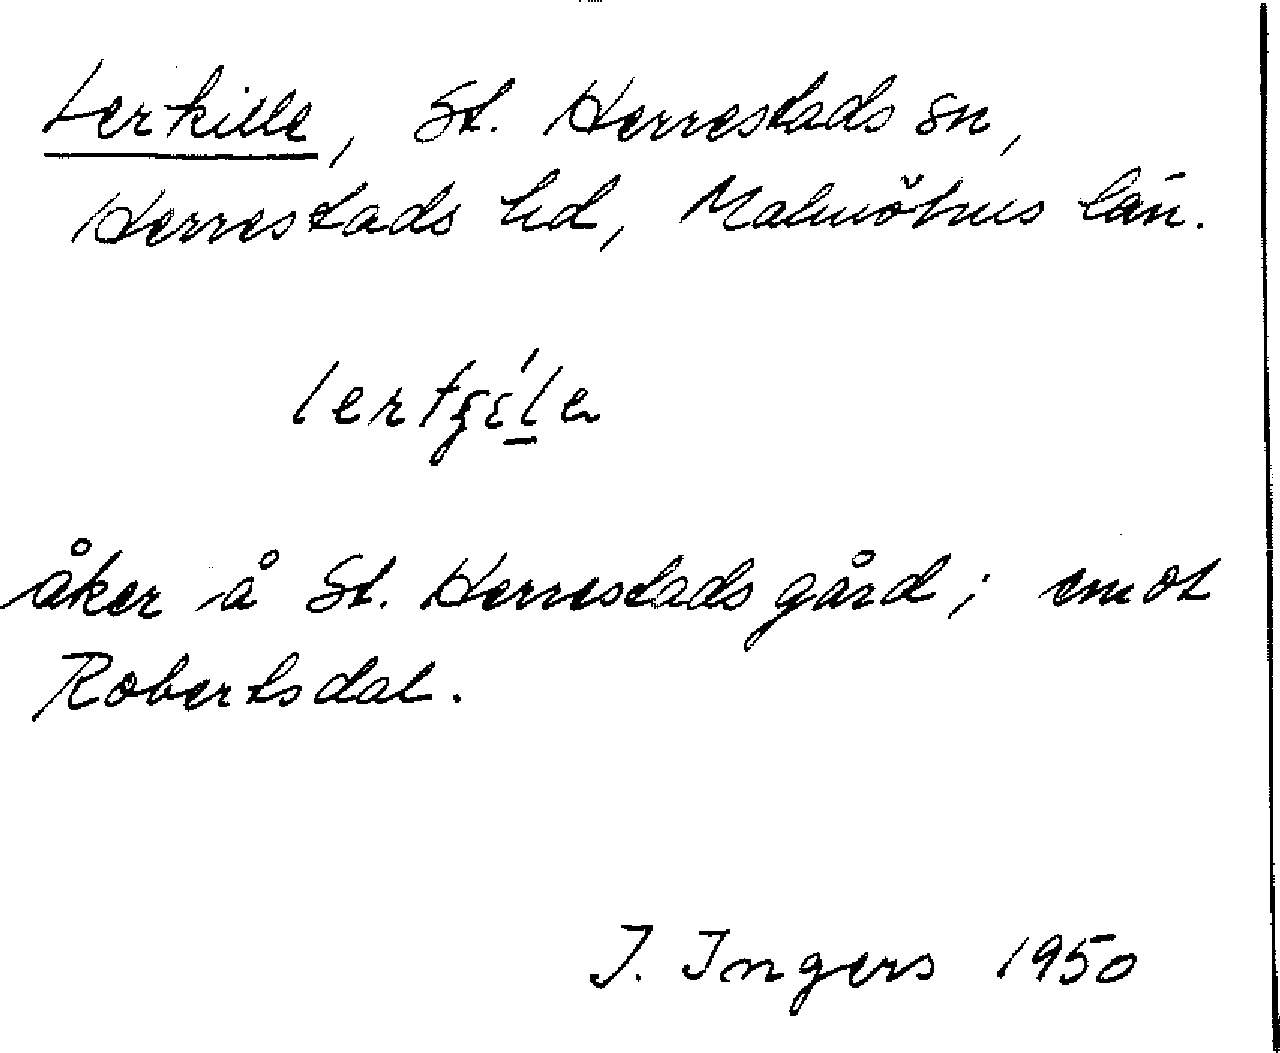 Lerkille, St. Herrestads sn,
Herrestads hd, Malmöhus län.
åker å St. Herrestads gård; emot
Robertsdal.
I. Ingers 1950